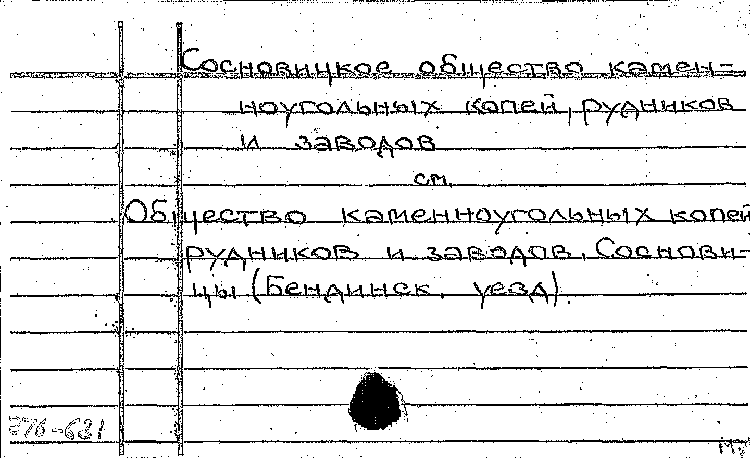 Сосновицкое общество камен-
ноугольных копей, рудников
и заводов
см.
Общество каменноугольных копей
рудников и заводов, Соснови-
цы (Бендинск. уезд).
276-621
М.